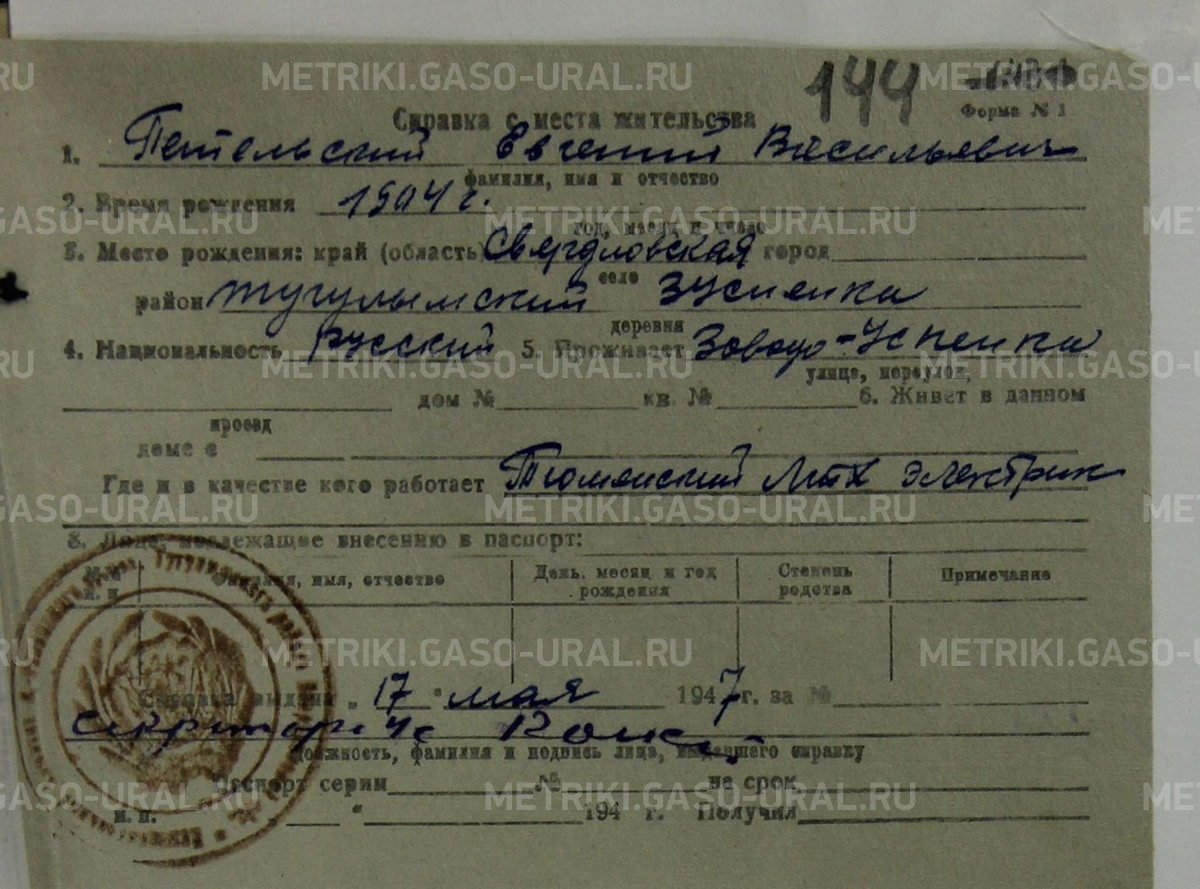 144
Форма № 1
Справка с места жительства
1. Петельский Евгений Васильевич
фамилия, имя и отчество
2. Время рождения 1904 г.
год, месяц и число
3. Место рождения: край (область) Свердловская город
село
район тугулымский ЗУспенка
деревня
4. Национальность русский 5. Проживает Заводо-Успенка
улица, переулок,
дом № кв. № 6. Живет в данном
проезд
доме с
Где и в качестве кого работает Тюменский электрик
8. Лица, подлежащие внесению в паспорт:
№№ п. п. Фамилия, имя, отчество День, месяц и год рождения Степень родства Примечание
Справка выдана „17" мая 1947 г. за №
Должность, фамилия и подпись лица, выдавшего справку
Паспорт серии № на срок
М. П. " 194 г. Получил
METRIKI.GASO-URAL.RU